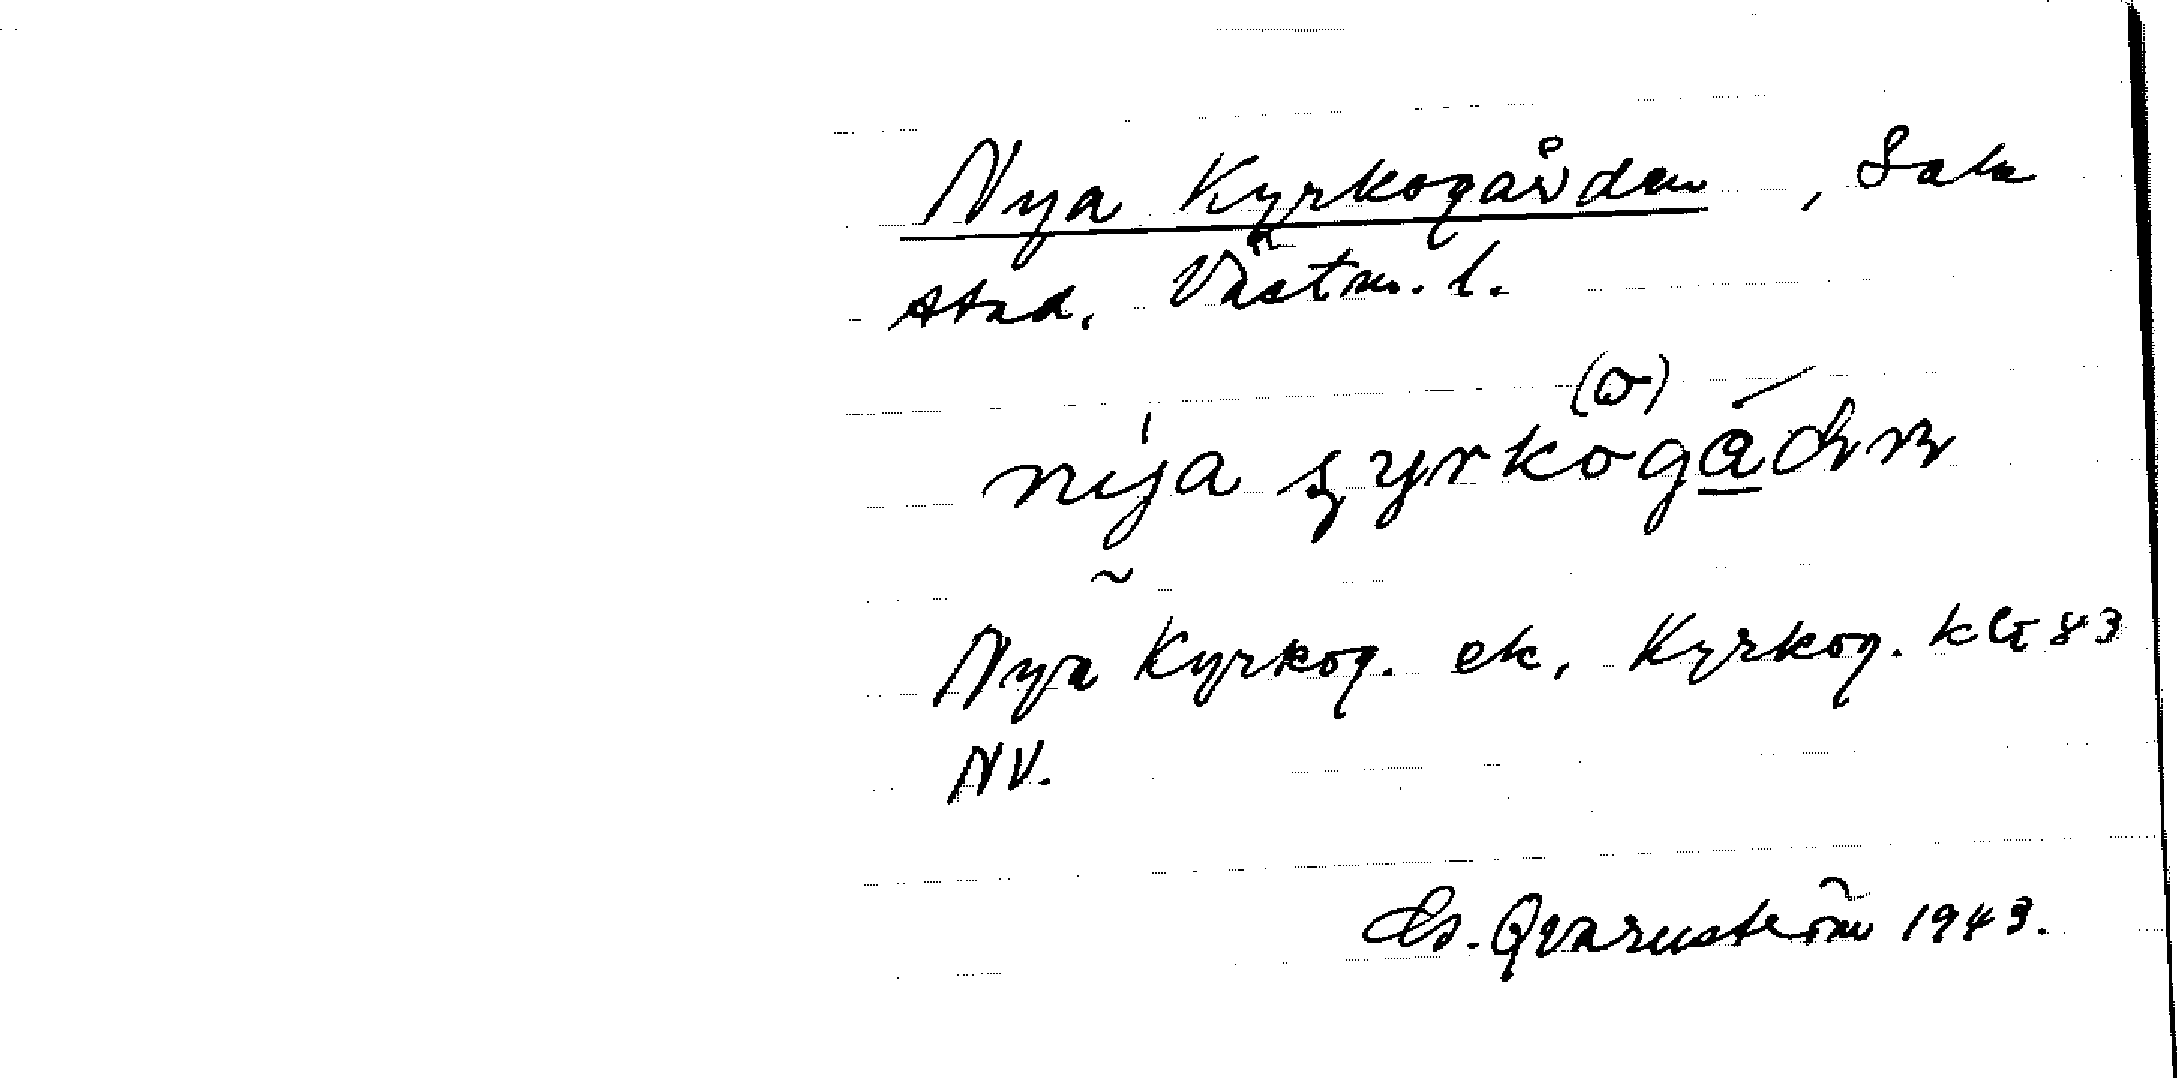 Nya Kyrkogården, Sala
stad. Västm. l.
(ω)
nya ȿyrkogádņ
Nya Kyrkog. ek, Kyrkog. klt 83
NV.
Qvarnström 1943.